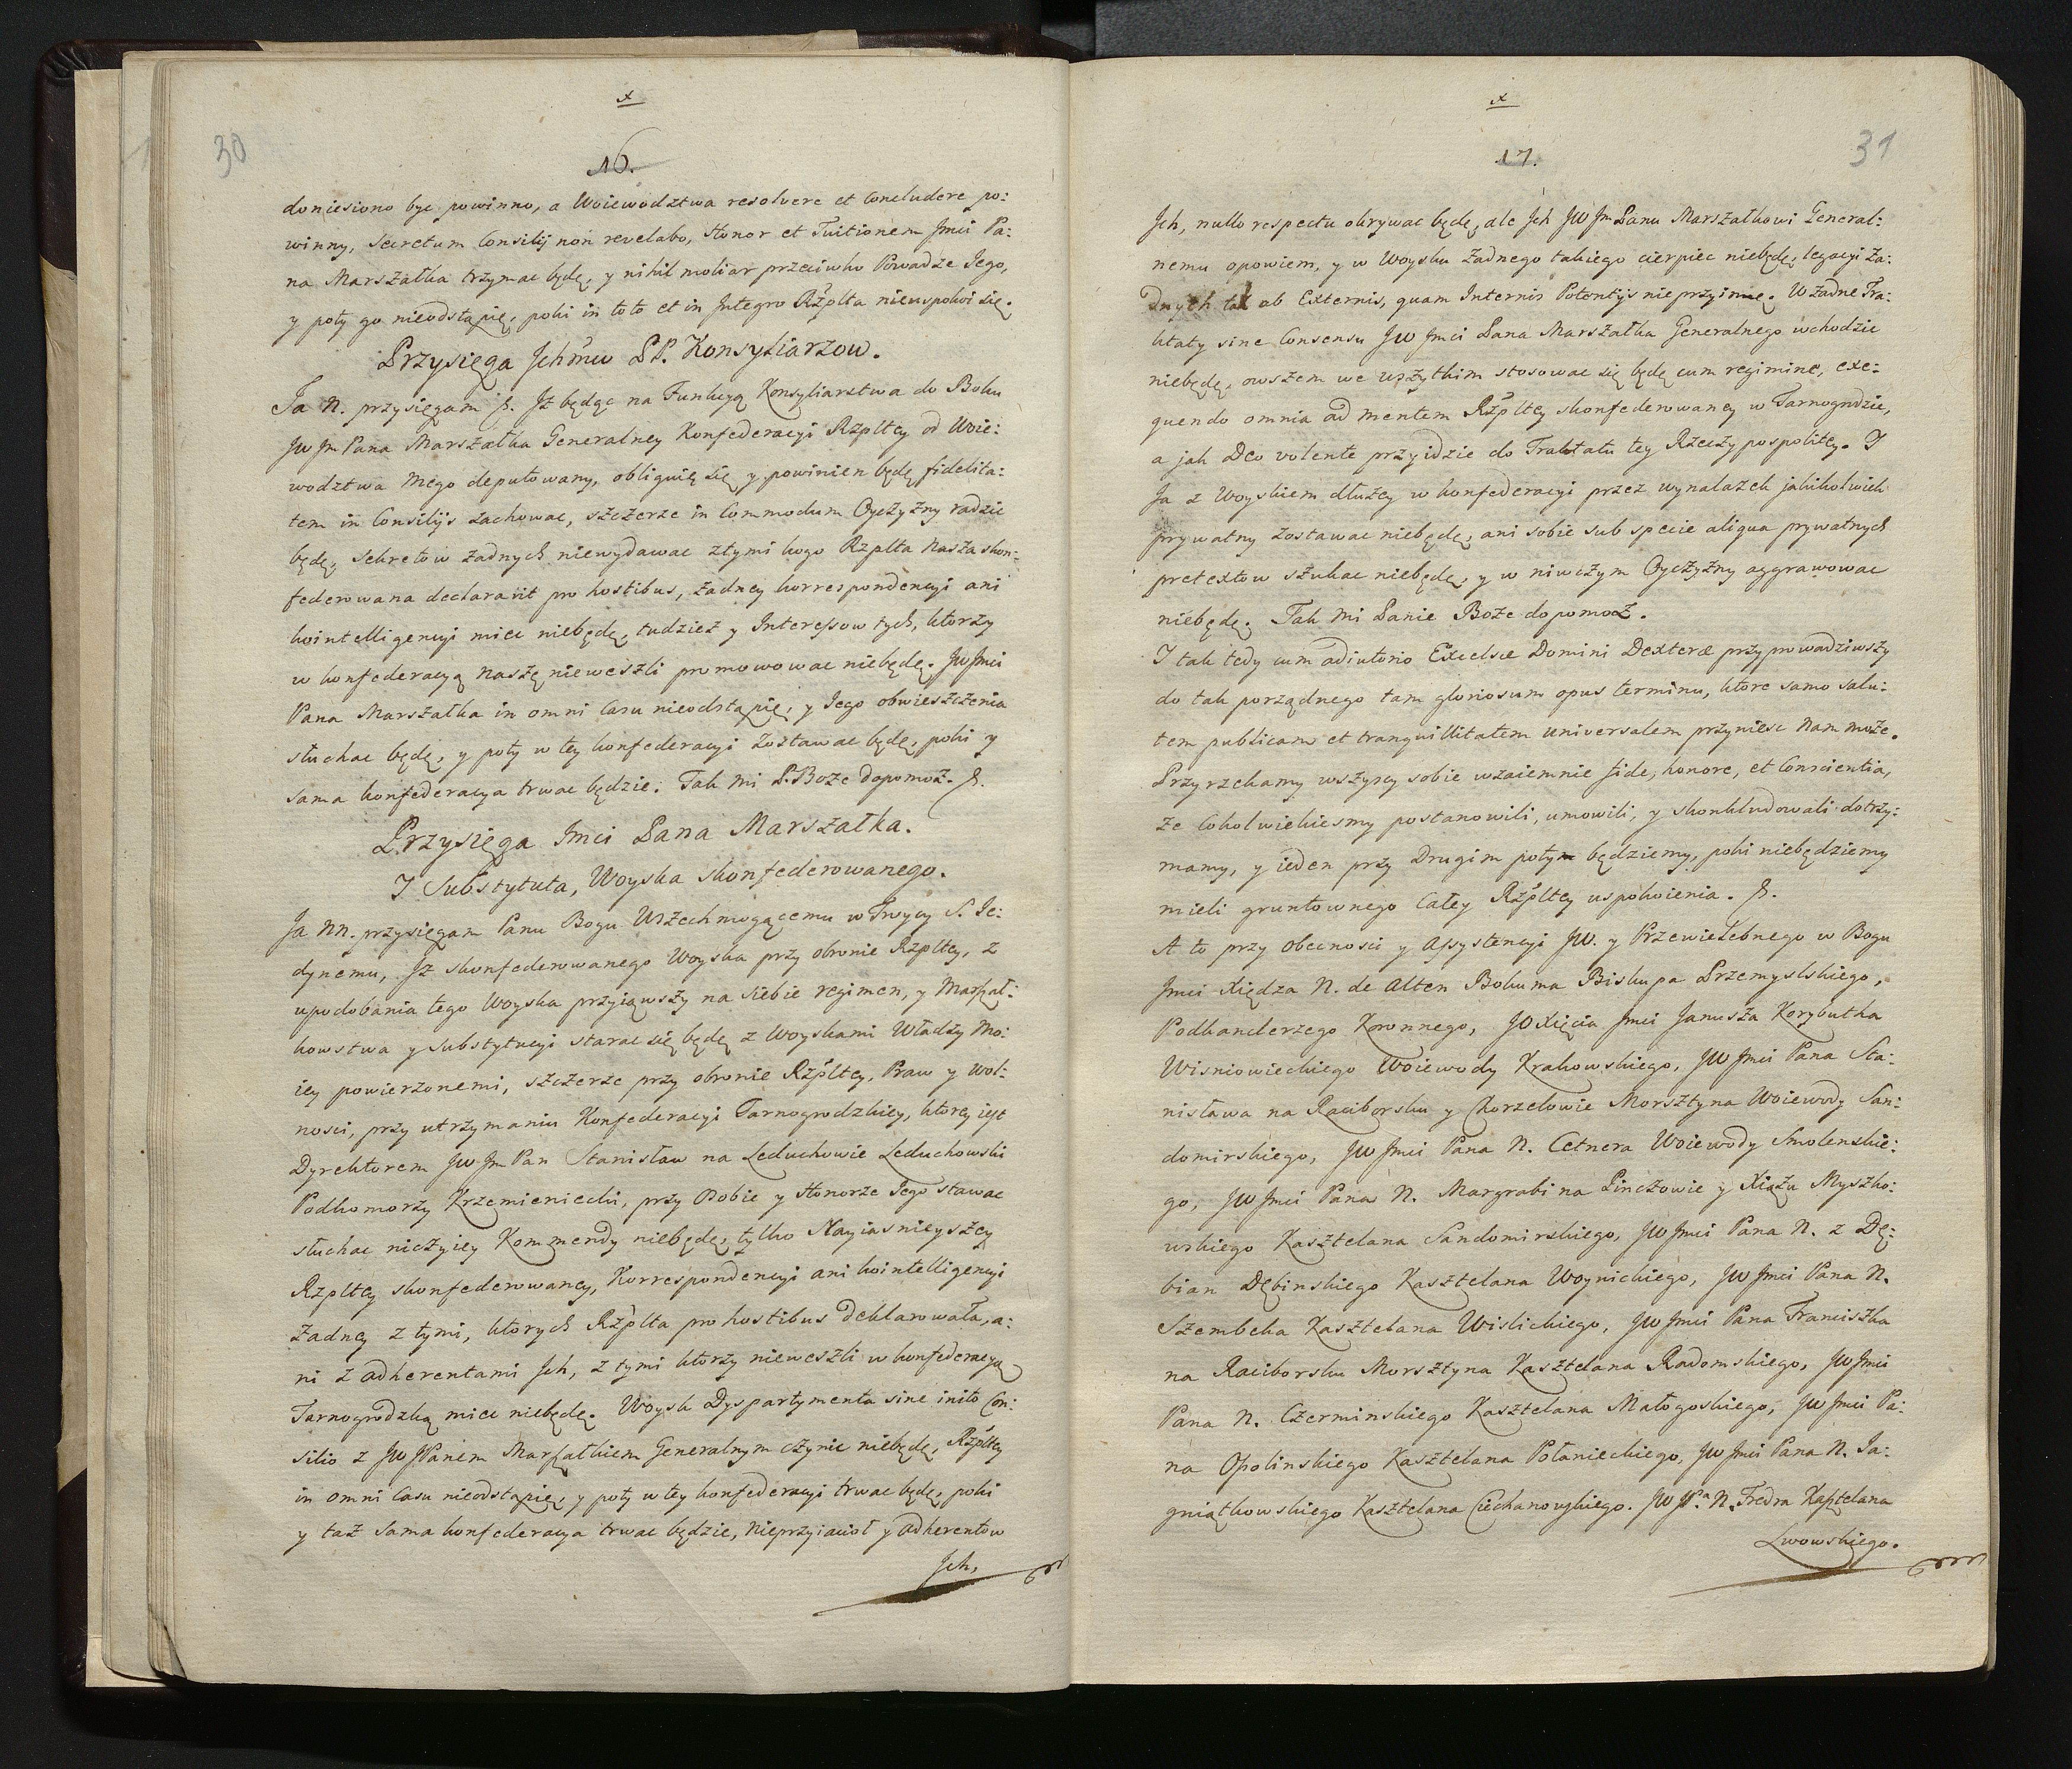 x
30
16.
doniesiono byc powinno, a Woiewodztwa resolvere et Concludere po:
winny, Secretum Consilij non revelabo, Honor et Tuitionem Jmci Pa:
na Marszałka trzymac będę, y nihil moliar przeciwko Powadze Jego,
y poty go nieodstąpię, poki in toto et in Integro Rzplta nieuspokoi się.
Przysięga Jchmw PP. Konsyliarzow.
Ja N. przysięgam &. Jż będąc na Funkcyą Konsyliarstwa do Boku
JW Jm Pana Marszałka Generalney Konfederacyi Rzpltey od Woie:
wodztwa mego deputowany, obliguię się y powinien będę fidelita:
tem in Consilijs zachowac, szczerze in Commodum Oyczyzny radzic
będę, Sekretow żadnych niewydawac z tymi kogo Rzplta Nasza skon:
federowana declaravit pro hostibus, żadney korrespondencyi ani
kointelligencyi miec niebędę, tudzież y Interessow tych, ktorzy
w konfederacyą naszę nieweszli promowowac niebędę. JW Jmci
Pana Marszałka in omni Casu nieodstąpię, y Jego obwieszczenia
słuchac będę, y poty w tey konfederacyi zostawac będę, poki y
sama konfederacya trwac będzie. Tak mi P. Boże dopomoż. &.
Przysięga Jmci Pana Marszałka.
I Substytuta, Woyska skonfederowanego.
Ja NN. przysięgam Panu Bogu Wszechmogącemu w Troycy S. Je:
dynemu, Jż skonfederowanego Woyska przy obronie Rzpltey, z
upodobania tego Woyska przyiąwszy na siebie regimen, y Marszał:
kowstwa y Substytucyi starac się będę z Woyskami Władzy mo:
iey powierzonemi, szczerze przy obronie Rzpltey, Praw y Wol:
nosci, przy utrzymaniu Konfederacyi Tarnogrodzkiey, ktorey iest
Dyrektorem JW Jm Pan Stanisław na Leduchowie Leduchowski
Podkomorzy Krzemieniecki, przy Osobie y Honorze Jego stawac
słuchac niczyiey Kommendy niebędę, tylko Nayiasnieyszey
Rzpltey skonfederowaney, Korrespondencyi ani kointelligencyi
żadney z tymi, ktorych Rzplta pro hostibus deklarowała, a:
ni z adherentami Jch, z tymi ktorzy nieweszli w konfederacyą
Tarnogrodzką miec niebędę. Woysk Dyspartymenta sine inito Con:
silio z JW JPanem Marszałkiem Generalnym czynic niebędę, Rzpltey
in omni Casu nieodstąpię, y poty w tey konfederacyi trwac będę, poki
y taż sama konfederacya trwac będzie, Nieprzyiacioł y adherentow
Jch,
x
31
17.
Jch, nullo respectu okrywac będę, ale Jch JW Jm Panu Marszałkowi General:
nemu opowiem, y w Woysku żadnego takiego cierpiec niebędę, legacyi ża:
dnych tak ab Externis, quam Internis Potentijs nieprzyimę. W żadne Tra:
ktaty sine Consensu JW Jmci Pana Marszałka Generalnego wchodzic
niebędę, owszem we wszytkim stosowac się będę cum regimine, exe:
quendo omnia ad mentem Rzpltey skonfederowaney w Tarnogrodzie,
a jak Deo volente przyidzie do Traktatu tey Rzeczypospolitey. I
Ja z Woyskiem dłużey w konfederacyi przez wynalazek jakikolwiek
prywatny zostawac niebędę, ani sobie sub specie aliqua prywatnych
pretextow szukac niebędę, y w niwczym Oyczyzny aggrawowac
niebędę. Tak mi Panie Boże dopomoż.
I tak tedy cum adiutorio Excelsæ Domini Dexteræ przyprowadziwszy
do tak porządnego tam gloriosum opus terminu, ktore samo salu:
tem publicam et tranquillitatem universalem przyniesc Nam może.
Przyrzekamy wszyscy sobie wzaiemnie fide, honore, et Conscientia,
że Cokolwiekiesmy postanowili, umowili, y skonkludowali dotrzy:
mamy, y ieden przy Drugim poty będziemy, poki niebędziemy
mieli gruntownego Całey Rzpltey uspokoienia. &.
A to przy obecnosci y Assystencyi JW. y Przewielebnego w Bogu
Jmci Xiędza N. de Alten Bokuma Biskupa Przemyslskiego,
Podkanclerzego Koronnego, JO Xięcia Jmci Janusza Korybutha
Wisniowieckiego Woiewody Krakowskiego, JW Jmci Pana Sta:
nisława na Raciborsku y Chorzelowie Morsztyna Woiewody San:
domirskiego, JW Jmci Pana N. Cetnera Woiewody Smolenskie:
go, JW Jmci Pana N. Margrabi na Pinczowie y Xiążu Myszko:
wskiego Kasztelana Sandomirskiego, JW Jmci Pana N. z Dę:
bian Dębinskiego Kasztelana Woynickiego, JW Jmci Pana N.
Szembeka Kasztelana Wislickiego, JW Jmci Pana Franciszka
na Raciborsku Morsztyna Kasztelana Radomskiego, JW Jmci
Pana N. Czerminskiego Kasztelana Małogoskiego, JW Jmci Pa:
na Opolinskiego Kasztelana Połanieckiego, JW Jmci Pana N. Ja:
gniątkowskiego Kasztelana Ciechanowskiego. JW JP.a N. Fredra Kasztelana
Lwowskiego.